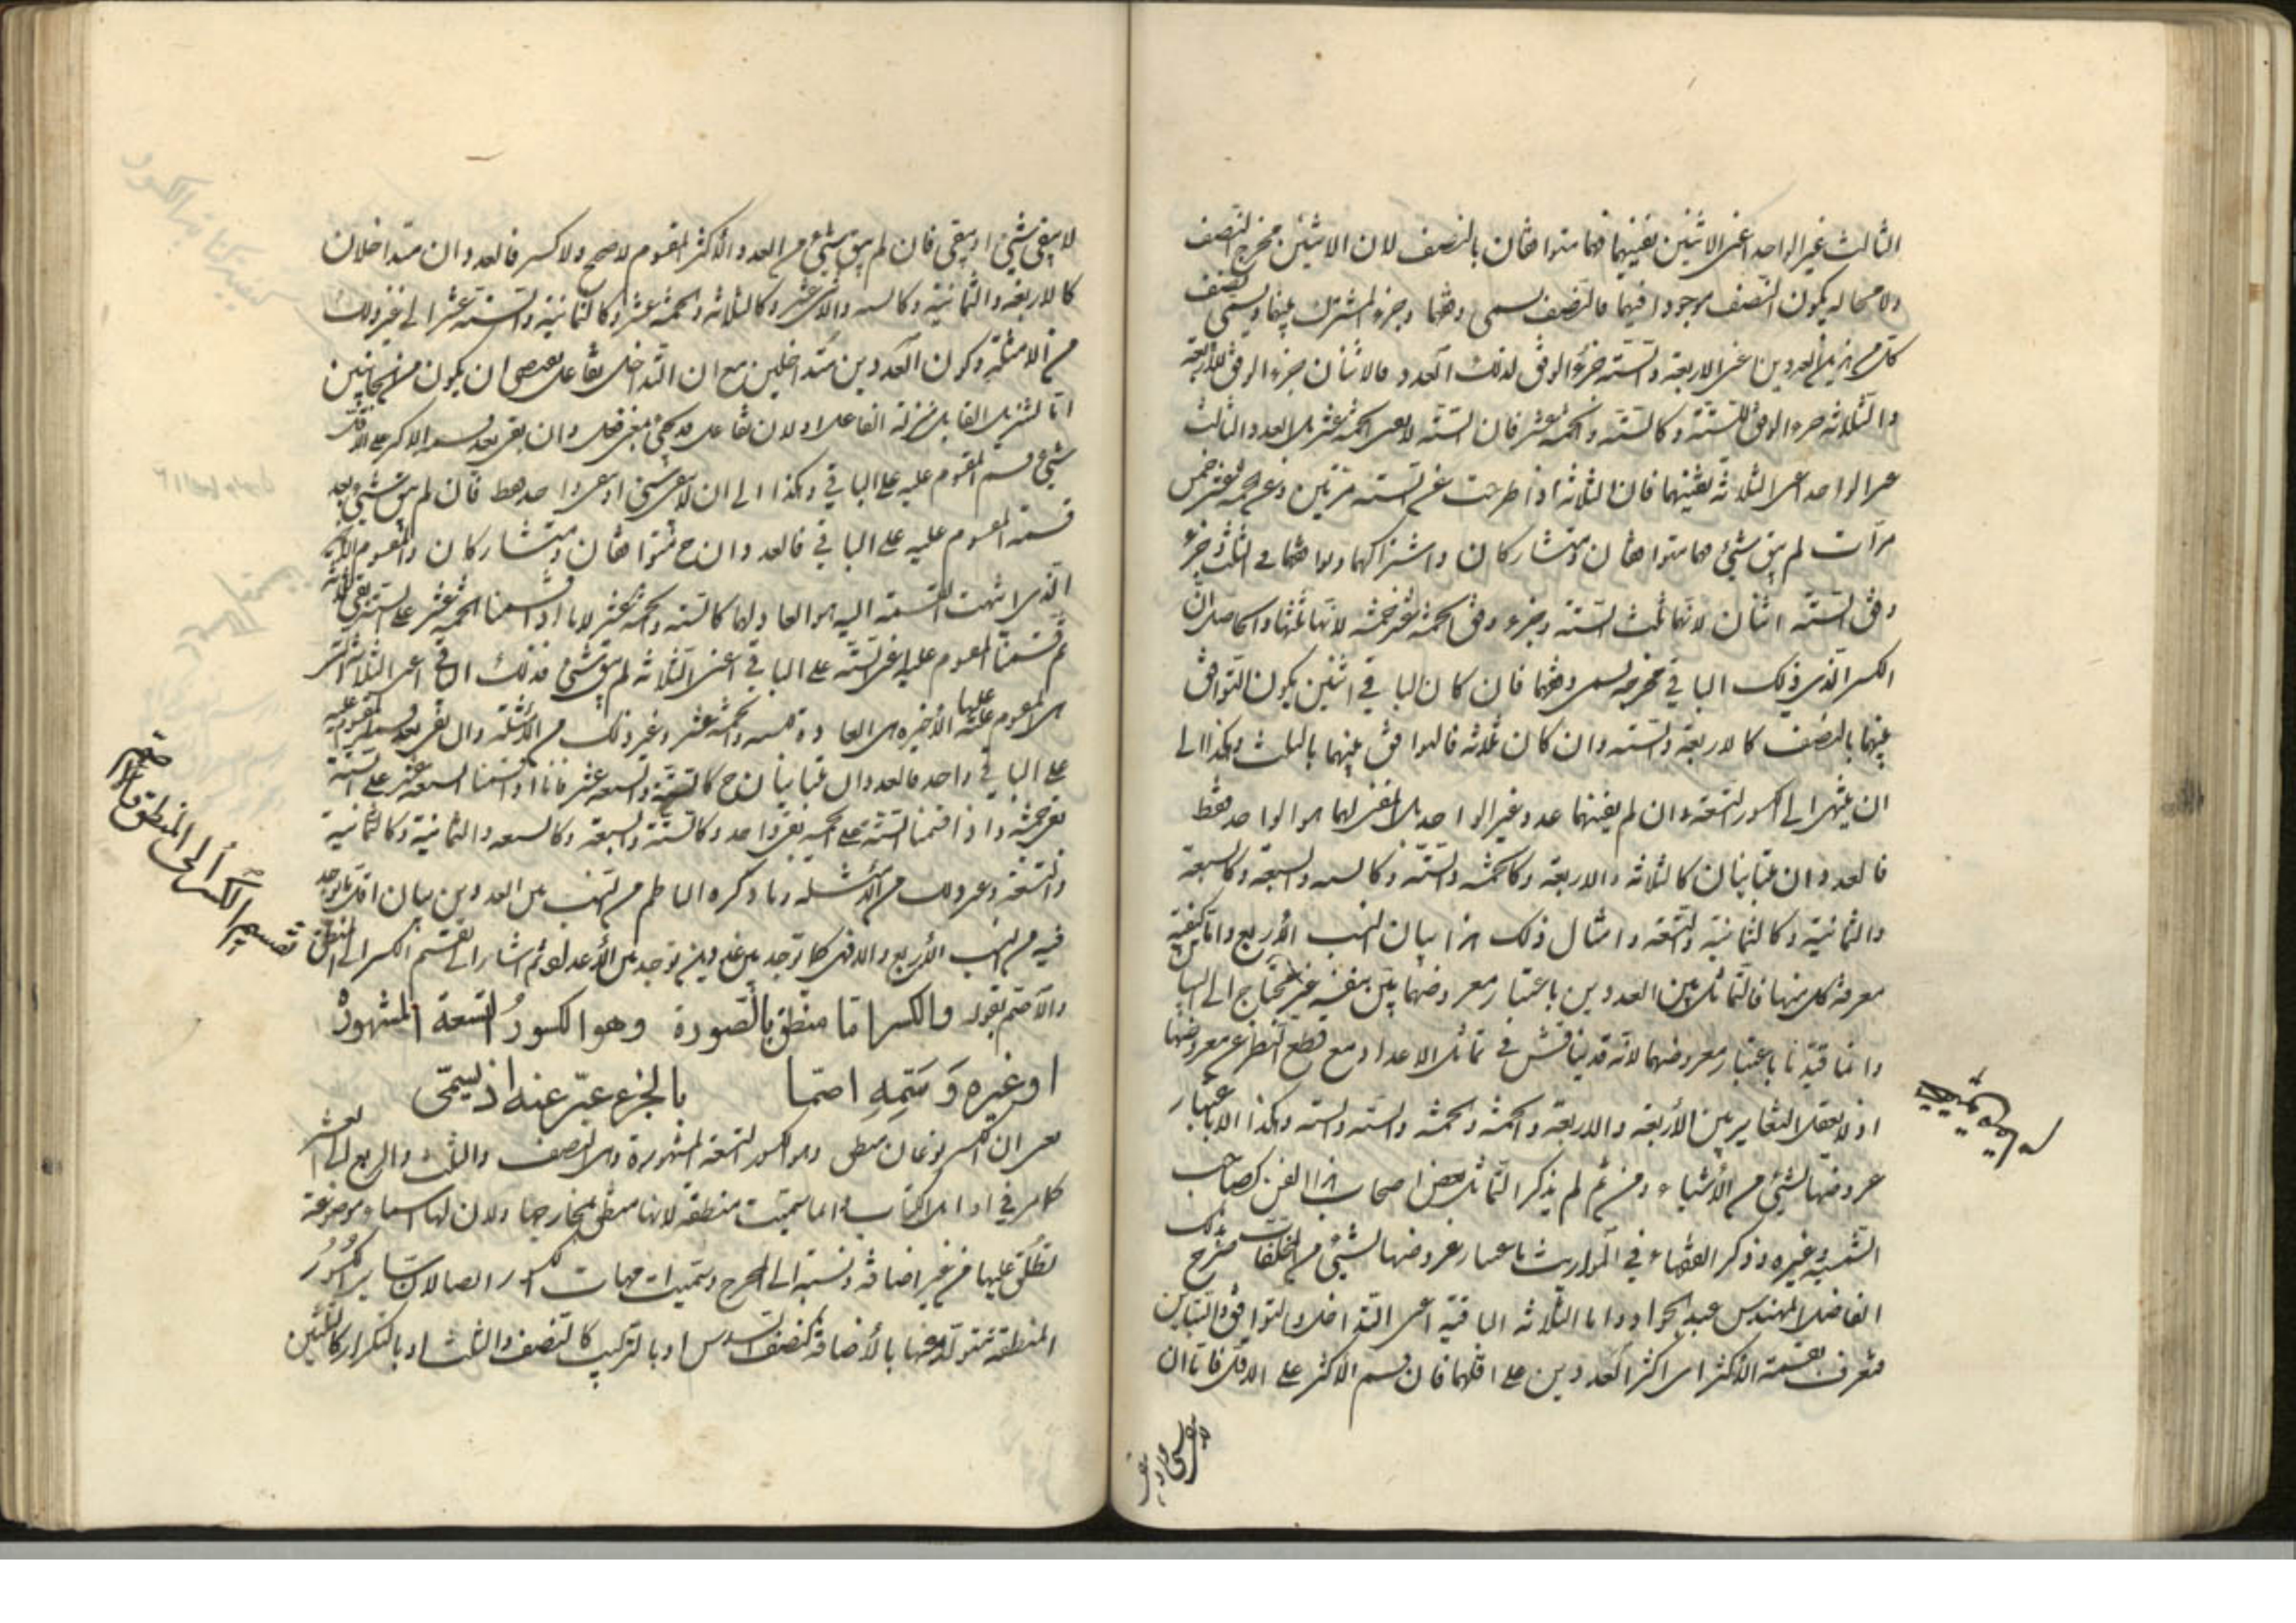 الثالث غير الواحد اعنى الاثنين يفنيهما فهما متوافقان بالنصف لان الاثنين مخرج النصف
ولا محاله يكون النصف موجودا فيهما فالنصف يسمى وفقهما وجزء المشترك بينهما ويسمى نصف
كل من هذين العددين اعنى الاربعة والستة جزء الوفق لذلك العدد فالاثنان جزء الوفق للاربعة
والثلاثة جزء الوفق للستة وكالستة والخمسة عشر فان الستة لا يفنى الخمسة عشر بل العدد الثالث
غير الواحد اعنى الثلاثة يفنيهما فان الثلاثة اذا طرحت عن الستة مرتين وعن خمسة عشر خمس
مرات لم يبق شيئ فهما متوافقان ومتشاركان واشتراكهما وتوافقهما في الثلث وجزء
وفق الستة اثنان لانها ثلث الستة وجزء وفق الخمسة عشر خمسة لانها ثلثها والحاصل ان
الكسر الذى ذلك الباقي مخرجه يسمى وفقهما فان كان الباقي اثنين يكون التوافق
بينهما بالنصف كالاربعة والستة وان كان ثلاثة فالتوافق بينهما بالثلث وهكذا الى
ان ينتهى الى الكسور التسعة وان لم يفنهما عدد غير الواحد بل المفنى لهما هو الواحد فقط
فالعددان متباينان كالثلاثة والاربعة وكالخمسة والستة وكالستة والسبعة وكالسبعة
والثمانية وكالثمانية والتسعة وامثال ذلك هذا بيان النسب الأربع واما كيفية
معرفة كل منها فالتماثل بين العددين باعتبار معروضهما بين بنفسه غير محتاج الى البيان
وانما قيدنا باعتبار معروضهما لانه قد يناقش في تماثل الاعداد مع قطع النظر عن معروضها
اذ لا يعقل التغاير بين الأربعة والاربعة والخمسة والخمسة والستة والستة وهكذا الا باعتبار
عروضها لشيئ من الأشياء ومن ثم لم يذكر التماثل بعض اصحاب هذا الفن كصاحب
الشمسية وغيره وذكر الفقهاء في المواريث باعتبار عروضها لشيئ من المخلفات صرح بذلك
الفاضل المهندس عبد الجواد واما الثلاثة الباقية اعنى التداخل والتوافق والتباين
فتعرف بقسمة الاكثر اى اكثر العددين على اقلهما فان قسم الاكثر على الاقل فاما ان
لا يبقى شيئ او يبقى فان لم يبق شيئ من العدد الأكثر المقسوم لا صحيح ولا كسر فالعددان متداخلان
كالاربعة والثمانية وكالستة والاثنى عشر وكالثلاثة والخمسة عشر وكالثمانية والستة عشر الى غير ذلك
من الامثلة وكون العددين متداخلين مع ان التداخل تفاعل يقتضى ان يكون من الجانبين
اما لتنزيل القابل منزلة الفاعل او لان تفاعل قد يجئ بمعنى فعل وان بقى بعد قسمة الاكثر على الاقل
شيئ قسم المقسوم عليه على الباقي وهكذا الى ان لا يبقى شيئ او يبقى واحد فقط فان لم يبق شيئ بعد
قسمة المقسوم عليه على الباقي فالعددان ح متوافقان ومتشاركان والمقسوم عليه
الذى انتهت القسمة اليه هو العاد لهما كالستة والخمسة عشر لانا اذا قسمنا الخمسة عشر على الستة بقى ثلاثة
ثم قسمنا المقسوم عليه اعنى الستة على الباقي اعنى الثلاثة لم يبق شيئ فذلك الباقي اعنى الثلاثة التى
هى المقسوم عليها الأخيرة هى العادة للستة والخمسة عشر وغير ذلك من الأمثلة وان بقى بعد قسمة المقسوم عليه
على الباقي واحد فالعددان متباينان ح كالستة والسبعة عشر فانا اذا قسمنا السبعة عشر على الستة
بقى خمسة واذا قسمنا الستة على الخمسة بقى واحد وكالستة والسبعة وكالسبعة والثمانية وكالثمانية
والتسعة وغير ذلك من الأمثلة وما ذكره الناظم من النسب بين العددين بيان اقل ما يوجد
فيه من النسب الأربع والا فهى كما توجد بين عددين توجد بين الأعداد ثم اشار الى تقسيم الكسر الى المنطق
والأصم بقوله والكسر اما منطق بالصورة وهو الكسور التسعة المشهورة
او غيره وسمّه اصمّا بالجزء عبّر عنه اذ يسمّى
يعنى ان الكسر نوعان منطق وهو الكسور التسعة المشهورة وهى النصف والثلث والربع الى العشر
كما مر في اوائل الكتاب وانما سميت منطقة لانها منطق بمخارجها ولان لها اسماء موضوعة
تطلق عليها من غير اضافة ونسبة الى المخرج وسميت امهات الكسور ايضا لان سائر الكسور
المنطقة متولدة منها بالأضافة كنصف السدس او بالتركيب كالنصف والثلث او بالتكرار كالثلثين
تقسيم الكسر الى المنطق والاصم